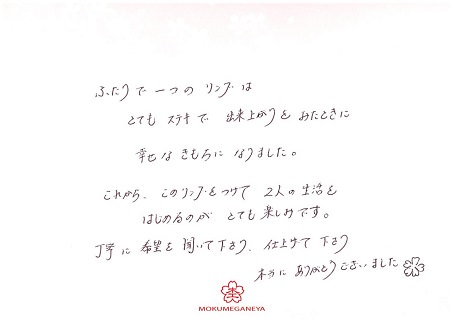 ふたりで一つの リングは
とても ステキで 出来上がりを みたときに
幸せな きもちに なりました。
これから、このリングをつけて 2人の生活を
はじめるのが とても楽しみです。
丁寧に 希望を 聞いて下さり、仕上げて 下さり
本当に ありがとうございました
MOKUMEGANEYA